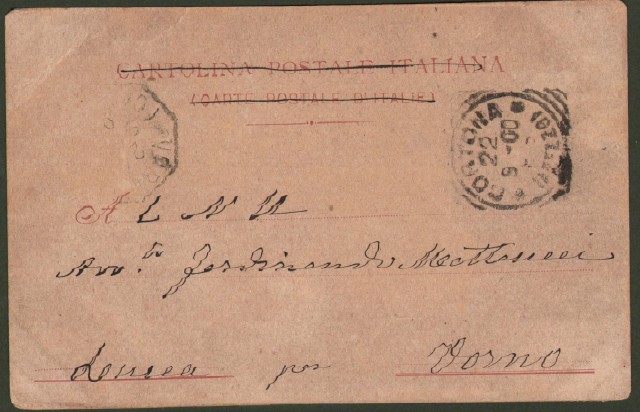 CARTOLINA POSTALE ITALIANA
(CARTE POSTALE D'ITALIE)
CORTONA (AREZZO)
22
9-00
A L N H
Avv.to Ferdinando Mattucci
Lucca per Vorno